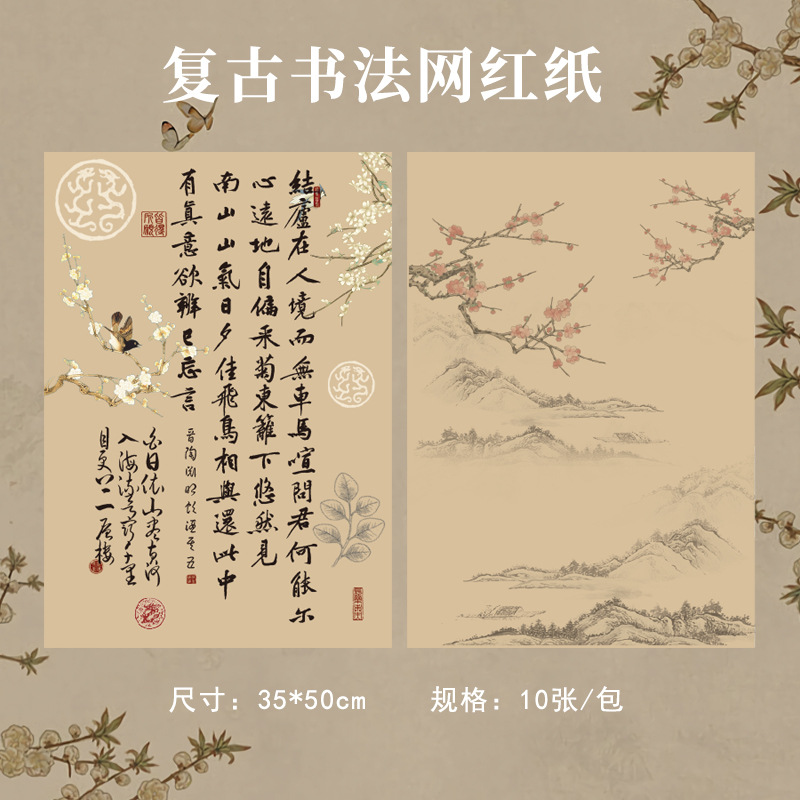 复古书法网红纸
結廬在人境而無車馬喧問君何能尔
心遠地自偏采菊東籬下悠然見
南山山氣日夕佳飛鳥相與還此中
有真意欲辨已忘言
晋陶渊明饮酒其五
白日依山尽黄河
入海流欲穷千里
目更上一层楼
尺寸：35*50cm
规格：10张/包